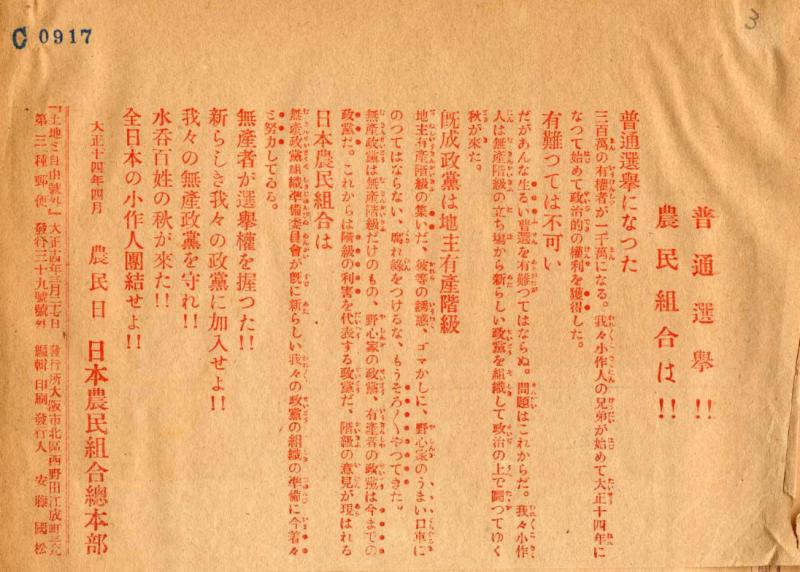 C 0917
3
普通選擧!!
農民組合は!!
普通選擧になつた
三百萬の有權者が一千萬になる。我々小作人の兄弟が始めて大正十四年に
なつて始めて政治的の權利を獲得した。
有難つては不可い
だがあんな生るい普選を有難つてはならぬ。問題はこれからだ。我々小作
人は無產階級の立ち塲から新らしい政黨を組織して政治の上で鬪つてゆく
秋が來た。
旣成政黨は地主有產階級
地主有產階級の集いだ、彼等の誘惑、ゴマかしに、野心家のうまい口車に
のつてはならない、腐れ緣をつけるな、もうそろ〳〵やつてきた。
無產政黨は無產階級だけのもの、野心家の政黨、有產者の政黨は今までの
政黨だ。これからは階級の利害を代表する政黨だ、階級の意見が現はれる
日本農民組合は
無產政黨組織準備委員會が旣に新らしい我々の政黨の組織の準備に今着々
ミ努力してゐる。
無產者が選擧權を握つた!!
新らしき我々の政黨に加入せよ!!
我々の無產政黨を守れ!!
水呑百姓の秋が來た!!
全日本の小作人團結せよ!!
大正十四年四月 農民日 日本農民組合總本部
『土地ミ自由號外』大正十四年三月三十七日 發行所大阪市北區西野田江成町
第三種郵便 發行三十九號號外 編輯印刷發行人 安藤國松